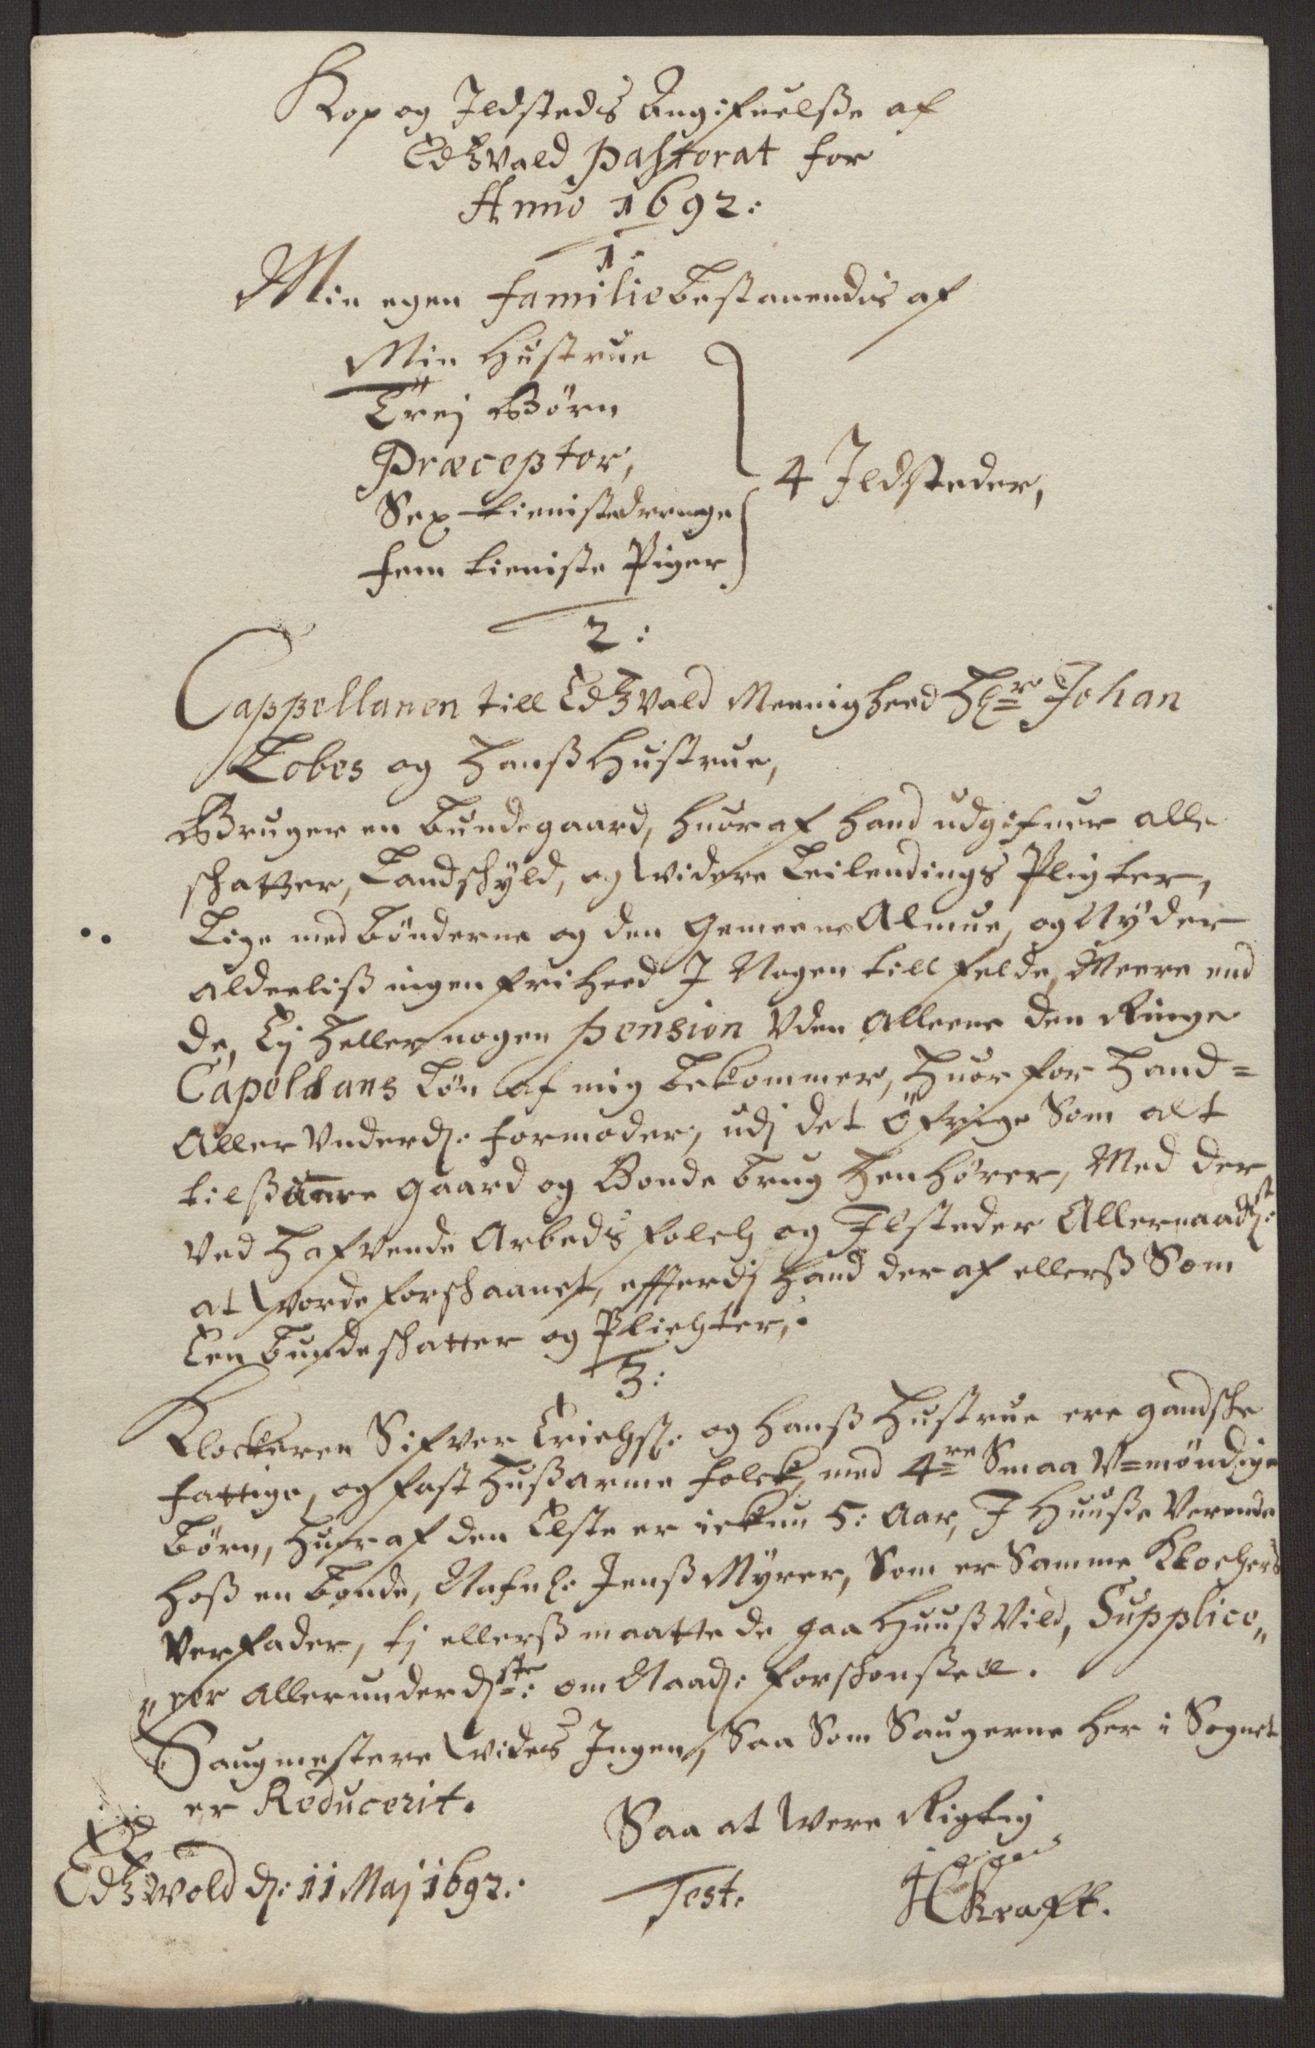 Kop og Ildsteds Angifuelsse af
Edtzvald pastorat for
Anno 1692:
1.
Min egen familie bestaaendis af
Min Hustrue
Trej Børn
Præceptor,
Sex tienistedrenge
fem tieniste Piger
4 Ildsteder,
2:
Cappellanen till Edtzvald Meenigheed Hr. Johan
Tobes og hanss Hustrue,
Bruger en bundegaard, huoraf hand udgifuer alle
schatter, Landschyld, og widere Leilendings Pligter,
Lige med bønderne og den gemeene Almue, og Nyder
aldeeliss ingen friheed J Nogen till felde, Meere end
de, Ej heller nogen pension Uden Alleene den Ringe
Capellans Løn af mig bekommer, huorfor hand=
Aller Underd: formoder, udj det Öfrige Som alt
till gaard og Bonde brug henhører, Med der
Ved hafvende Arbeds folch og Ilsteder Allernaad:st
at worde forschaanet, efterdj hand deraf ellerss Som
Een bunde schatter og Pliehter,.
3:
Klockeren Sifver Erichs: og hanss Hustrue ere gandsche
fattige, og fast Hussarme folck, med 4re Smaa U=möndige
Børn, huoraf den Elste er ickun 5: Aar, J Huusse Verende
hoss en bonde, Nafnl: Jenss Myrer, Som er Samme Klochers
Verfader, tj ellerss maatte de gaa Huuss Vild, Supplice„
„rer allerunderd:ste: om Naad: forschonssell.
Saugmestere wides Ingen, Saa Som Saugerne her i Sognet
er Reducerit.
Saa at were Rigtig
Edtzwold d: 11 Maj 1692:
Test.
HCKraft.